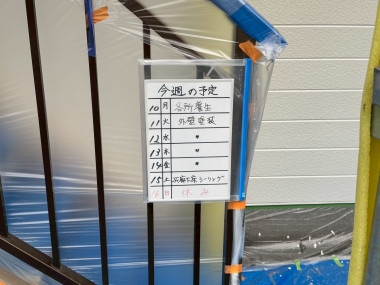 今週の予定
10 月 各所養生
11 火 外壁塗装
12 水 〃
13 木 〃
14 金 〃
15 土 シーリング
16 日 休み